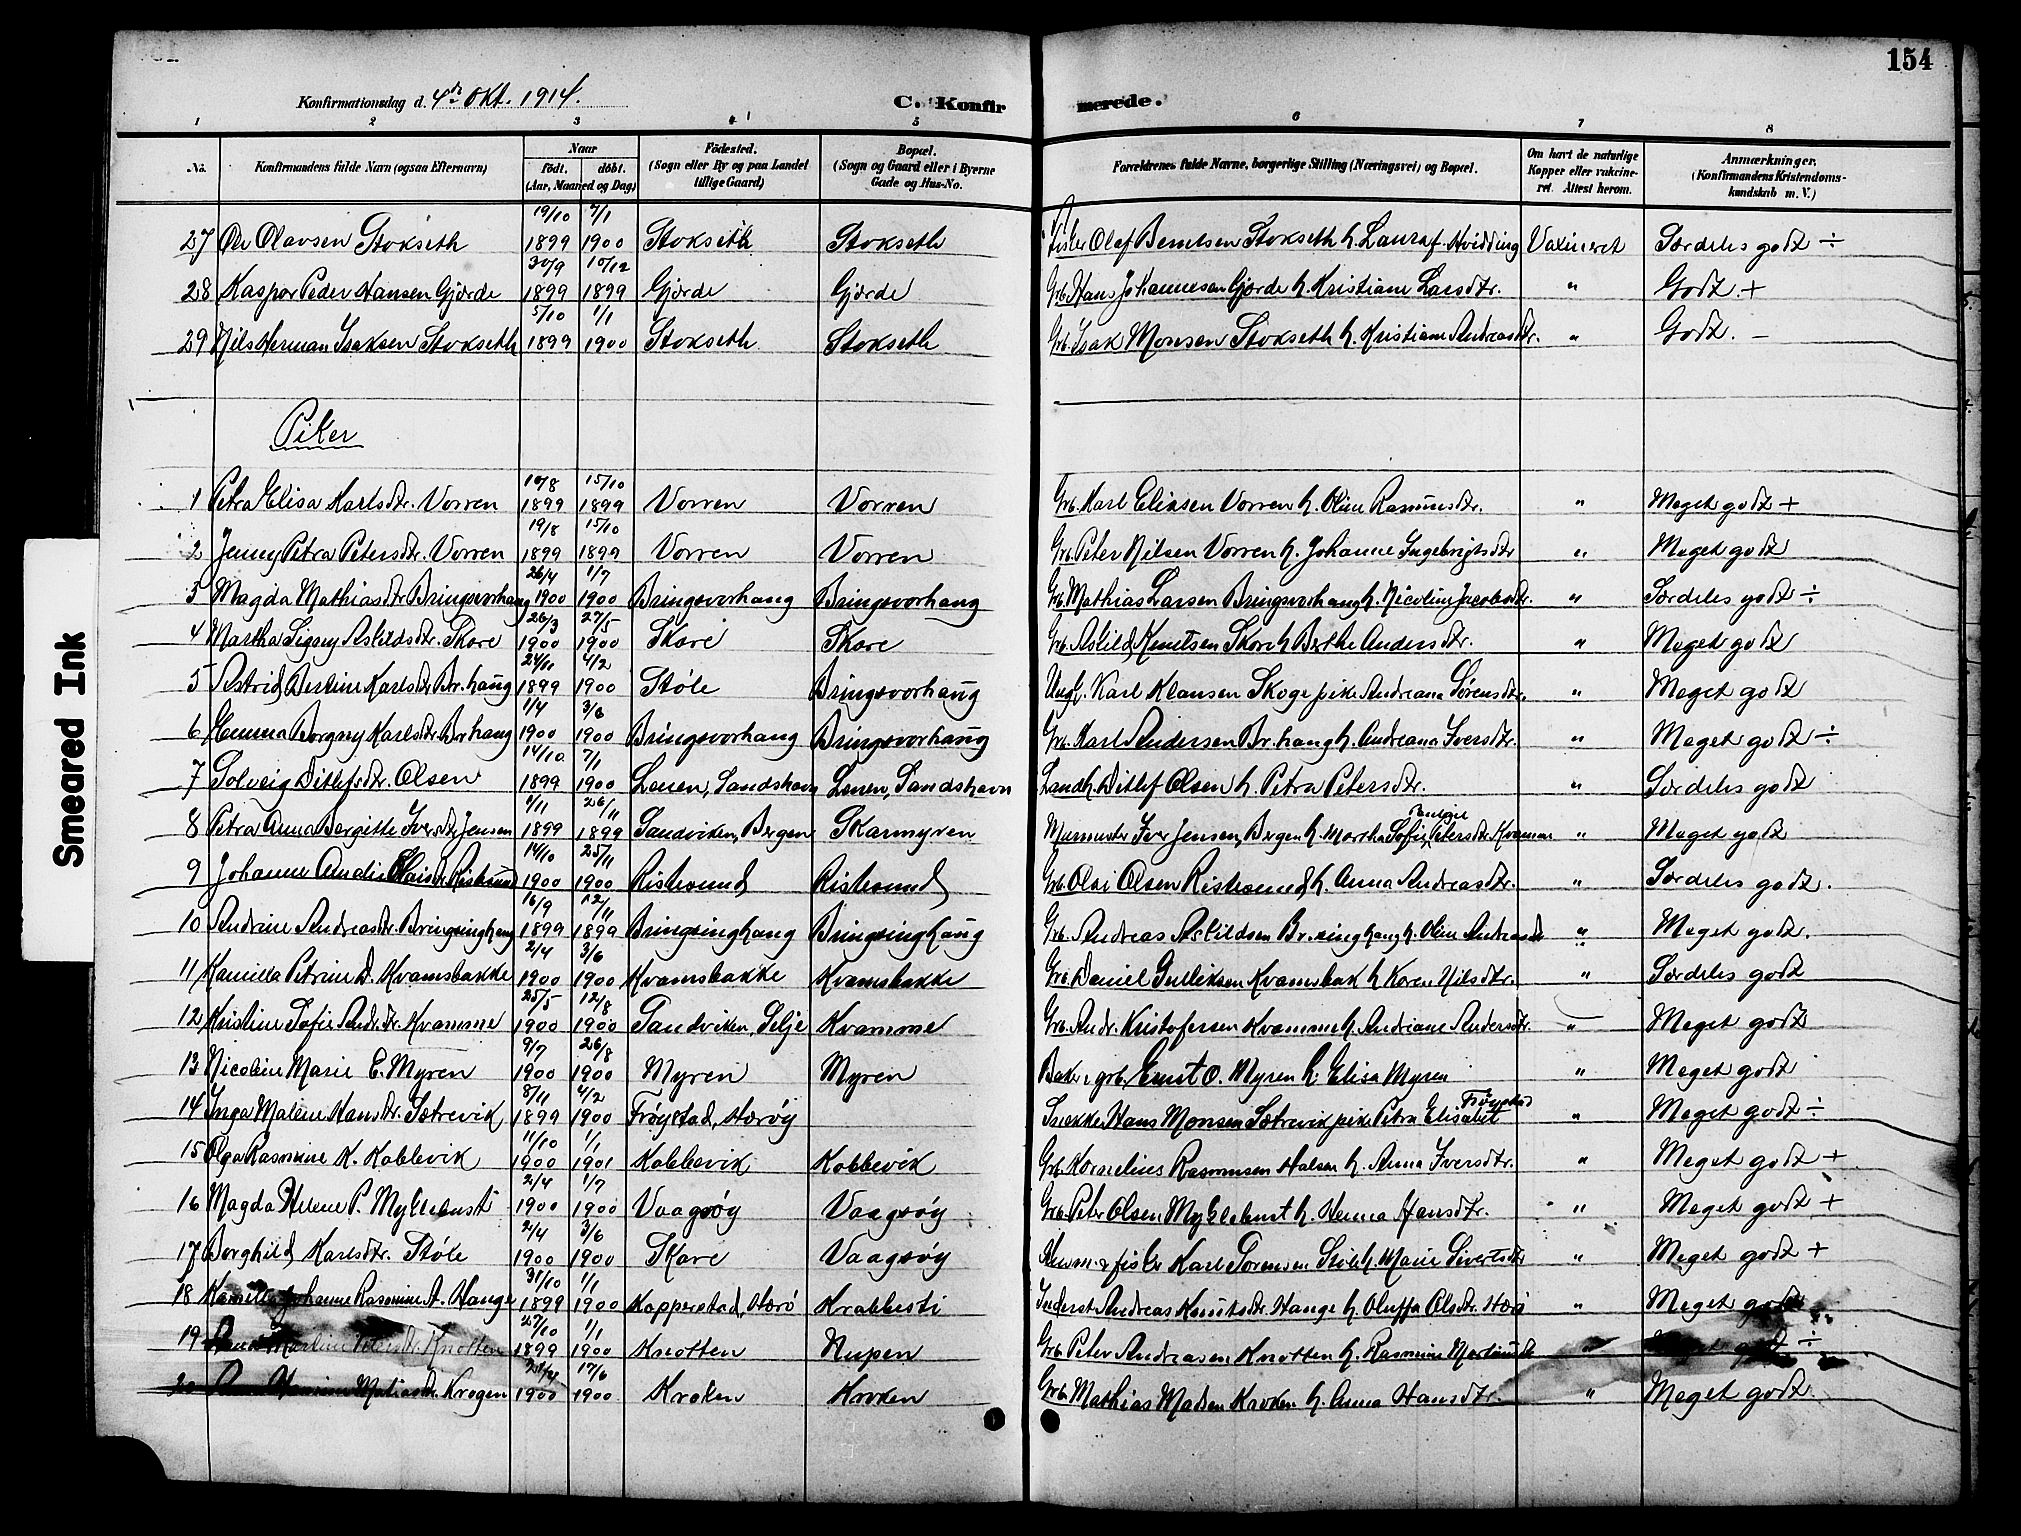 154
Konfirmationsdag d. 4de Okt. 1914.
C. Konfirmerede.
1 2 3 4 5 6 7 8
No.
Konfirmandens fulde Navn (ogsaa Efternavn)
Naar
født. døbt.
(Aar, Maaned og Dag)
Fødested.
(Sogn eller By og paa Landet
tillige Gaard)
Bopæl.
(Sogn og Gaard eller i Byerne
Gade og Hus-No.
Forældrenes fulde Navne, borgerlige Stilling (Næringsvei) og Bopæl.
Om havt de naturlige
Kopper eller vakcine-
ret. Attest herom.
Anmærkninger.
(Konfirmandens Kristendoms-
kundskab m. V.)
19/10 7/1
27 Ole Olavsen Stokseth 1899 1900 Stokseth Stokseth Fisker Olaf Berntsen Stokseth h. Laura f. Hvidding Vaxineret Særdeles godt ÷
30/9 10/12
28 Kaspar Peder Hansen Gjørde 1899 1899 Gjørde Gjørde Grb. Hans Johannesen Gjørde h. Kristiane Larsdtr. " Godt. +
5/10 1/1
29 Nils Herman Isaksen Stokseth 1899 1900 Stokseth Stokseth Grb. Isak Monsen Stokseth h. Kristiane Andreasdtr. " Godt. –
Piker
10/8 15/10
1 Petra Elisa Karlsdtr. Vorren 1899 1899 Vorren Vorren Grb. Karl Eliksen Vorren h. Oline Rasmusdtr. " Meget godt +
19/8 15/10
2 Jenny Petra Petersdtr. Vorren 1899 1899 Vorren Vorren Grb. Peter Nilsen Vorren h. Johanne Ingebrigtsdtr " Meget godt
26/4 1/7
3 Magda Mathiasdtr Bringsvorhaug 1900 1900 Bringsvorhaug Bringsvorhaug Grb. Mathias Larsen Bringsvorhaug h. Nicoline Jacobsdtr. " Særdeles godt ÷
26/3 27/5
4 Martha Signy Aslidsdtr. Skore 1900 1900 Skare Skare Grb. Aslid Knutsen Skore h Berthe Andersdtr. " Meget godt
24/11 4/2
5 Astrid Bertine Karlsdtr Br.haug 1899 1900 Støle Bringsvorhaug Ungk. Karl Klausen Skoge pike Andreana Sørensdtr. " Meget godt
1/4 3/6
6 Emma Borgny Karlsdtr. Br.haug 1900 1900 Bringsvorhaug Bringsvorhaug Grb. Karl Andersen Br.haug h. Andreana Iversdtr. " Meget godt ÷
14/10 7/1
7 Solveig Ditlefsdtr. Olsen 1899 1900 Leven, Sandshavn Leven, Sandshavn Landh. Ditlef Olsen h. Petra Petersdtr. " Særdeles godt
1/11 26/11
8 Petra Anna Bergitte Iversdtr Jensen 1899 1899 Sandviken, Bergen Skarmyren Murmester Iver Jensen, Bergen h. Martha Sofie Petersdtr Kvamme " Meget godt
14/10 25/11
9 Johanne Amalie Olaisdtr Ristesund 1900 1900 Ristesund Ristesund Grb. Olai Olsen Ristesund h. Anna Andreasdtr. " Særdeles godt.
16/9 12/11
10 Andrine Andreasdtr. Bringsinghaug 1899 1899 Bringsinghaug Bringsinghaug Grb. Andreas Aslidsen Br.singhaug h. Oline Andreasdtr " Meget godt.
2/4 3/6
11 Kamilla Petrine D. Kvamsbakke 1900 1900 Kvamsbakke Kvamsbakke Grb. Daniel Gulliksen Kvamsbak h Karen Nilsdtr. " Særdeles godt
25/5 12/8
12 Kristine Sofie Andr.dtr. Kvamme 1900 1900 Sandviken, Selje Kvamme Grb. Andr. Kristofersen Kvamme h. Andriane Andersdtr. " Meget godt
9/7 26/8
13 Nicoline Marie E. Myren 1900 1900 Myren Myren Baker & grb. Ernst O. Myren h. Elisa Myren " Meget godt
8/11 4/2
14 Inga Malene Hansdtr. Sætrevik 1899 1900 Frøystad, Herøy Snekker Hans Monsen Sætrevik pike Petra Elisabet Frøystad " Meget godt ÷
11/10 1/1
15 Olga Rasmine K. Kobbevik 1900 1901 Kobbevik Kobbevik Grb. Kornelius Rasmusen Halsen h. Anna Iversdtr. " Meget godt +
2/4 1/7
16 Magda Helene P. Myklebust 1900 1900 Vaagsøy Vaagsøy Grb. Peter Olsen Myklebust h. Hanna Hansdtr. " Meget godt +
2/4 3/6
17 Borghild Karlsdtr. Støle 1900 1900 Skare Vaagsøy Husm. & fisker Karl Sørensen Støle h. Marie Sivertsdtr " Meget godt +
31/10 1/1
18 Kamilla Johanne Rasmine A. Hauge 1899 1900 Kopperstad, Herø Krabbesti Inderst Andreas Knutsdtr. Hauge h. Oluffa Olsdtr. Herø " Meget godt
27/10 1/1
19 Martine Petersdtr. Knotten 1899 1900 Knotten Nupen Grb Peter Andreasen Knotten h. Rasmine Martinusdtr " godt ÷
17/6
20 Matiasdtr. Krogen 1900 1900 Kroken Kroken Grb Mathias Madsen Kroken h. Anna Hansdtr. " Meget godt.
Smeared Ink